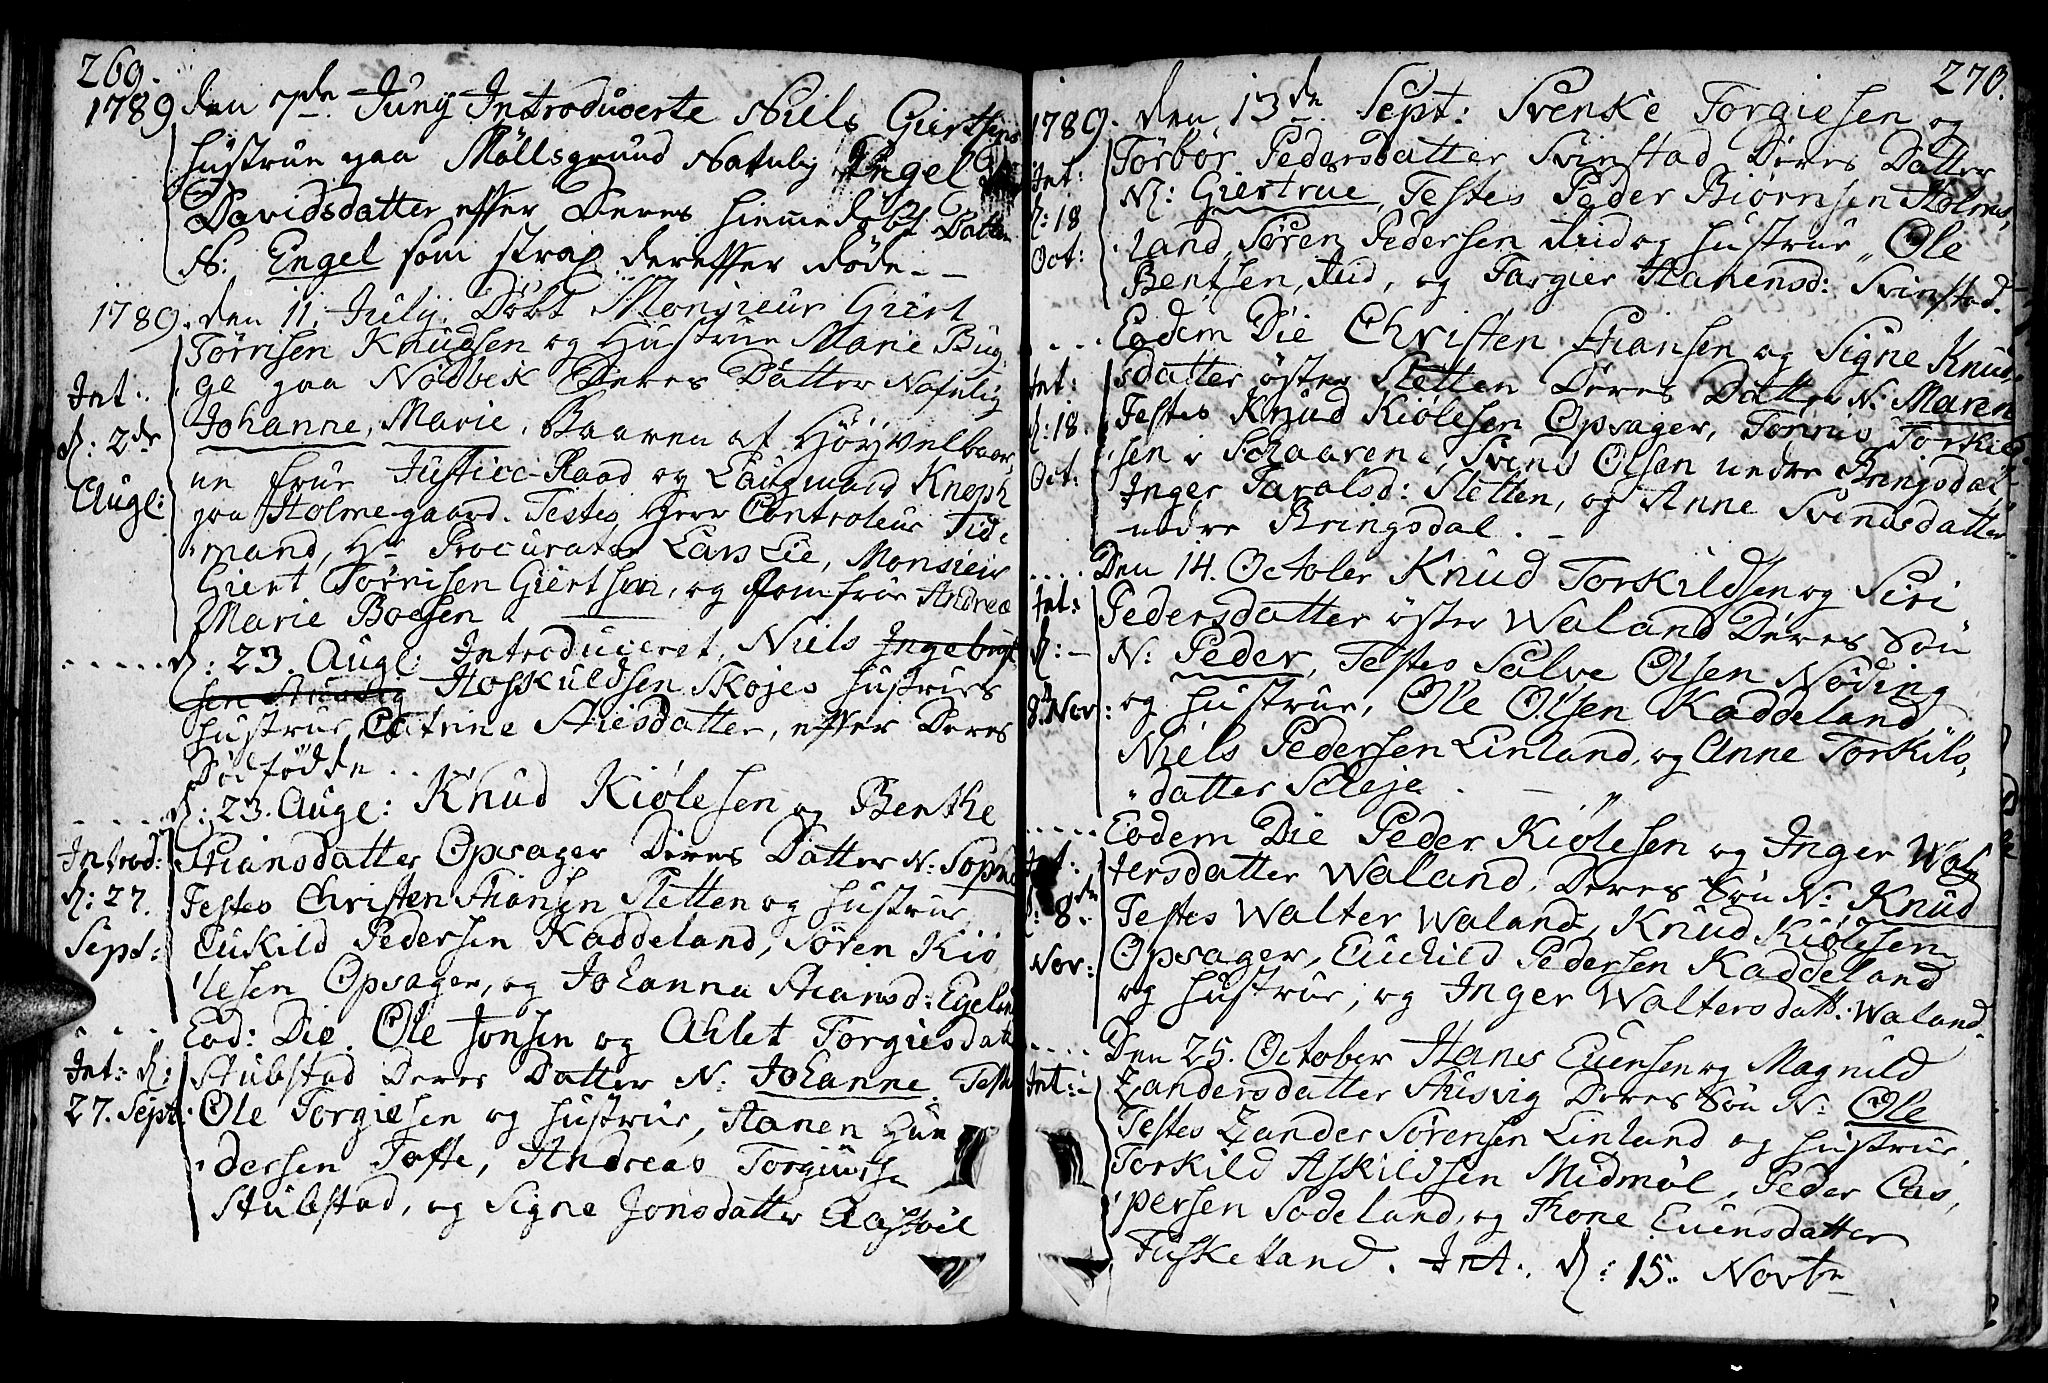 269.
1789 den 7de Juny Introducerte Niels Giertsens
Hustrue paa Möllsgrund Nafnlig Engel
Davidsdatter efter Deres hiemmedöbt Datter
N: Engel som strax derefter döde. —
1789. den 11. July. Döbt Monsieur Giert
Tørrisen Knudsen og Hustrue Marie Bug,
ge paa Nodbek Deres Datter Nafnlig
Int:
Johanne, Marie, Baaren af Höyvelbaar,
d: 2de
ne frue Justice-Raad og Laugmand Knoph
Augl:
paa Holmegaard. Testes Herr Controleur Tide
mand, Hr Procurator Lars Lie, Monsieur
Giert Tørrisen Giertsen, og Jomfrue Andrea
Marie Boesen.
d: 23. Augl: Introduceret, Niels Ingebrigt
sen Hoskuldsen Skojes Hustrues
Hustrue, Catrine Stiesdatter, efter Deres
Dödfödde.
d: 23. Augl: Knud Kiölesen og Benthe
Introd:
Stiansdatter Opsager Deres Datter N: Sophie
d: 27.
Testes Christen Stiansen Sletten og Hustrue,
Sept:
Eukild Pedersen Kaddeland, Sören Kiö
lesen Opsager, og Johanna Stiansd: Egeland
Eod: Die. Ole Jonsen og Ahlet Torgiesdatt
Int: d:
Stubstad Deres Datter N: Johanne. Testes
27. Sept:
Ole Torgiesen og Hustrue, Hanen Gun
dersen Tofte, Andreas Torgiussen
Stubstad, og Signe Jonsdatter
270.
1789. den 13de Sept: Svenke Torgiesen og
Torbor Pedersdatter Svinstad Deres Datter
Int:
N: Giertrue, Testes Peder Biörnsen Holme,
d: 18
land, Sören Pedersen Aud og Hustrue, Ole
Oct:
Bentsen, Aud, og Targier Hanensd: Svinstad.
Eodem Die Christen Stiansen og Signe Knud,
Int:
sdatter öster Sletten Deres Datter N: Maren
d: 18.
Testes Knud Kiölesen Opsager, Tönnes Torkild
Oct:
sen i Schaarene, Svend Olsen nedre Bringsdal
Inger Taralsd: Sletten, og Anne Svendsdatter
nedre Bringsdal. —
Den 14. October Knud Torkildsen og Siri
Int:
Pedersdatter öster Waland Deres Sön
d: —
N: Peder, Testes Salve Olsen Nöding
8de Nov:
og Hustrue, Ole Olsen Kaddeland
Niels Pedersen Linland, og Anne Torkils,
datter Scleje.
Eodem Die Peder Kiölesen og Inger Wal,
Int:
tersdatter Waland, Deres Sön N: Knud
d: 8de
Testes Walter Waland, Knud Kiölesen
Nov:
Opsager, Euchild Pedersen Kaddeland
og Hustrue, og Inger Waltersdatt: Waland.
Den 25. October Hans Evensen og Magnild
Int:
Zandersdatter Stusvig Deres Sön N: Ole
Testes Zander Sörensen Linland og Hustrue,
Torkild Askildsen Midmöl, Peder Cas,
persen Sodeland, og Thone Evensdatter
Tuskeland. Int: d: 15. Novbr